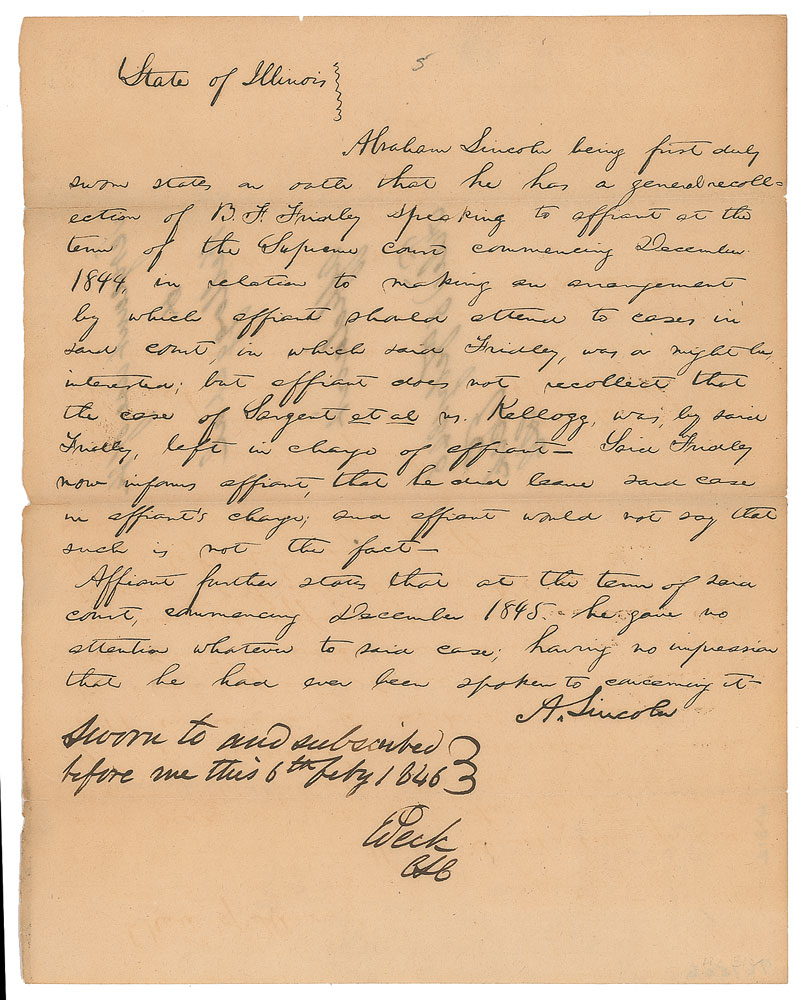 State of Illinois
5
Abraham Lincoln being first duly
sworn states on oath that he has a general recoll=
ection of B. F. Fridley speaking to affiant at the
term of the Supreme court commencing December
1844, in relation to making an arrangement
by which affiant should attend to cases in
said court, in which said Fridley, was or might be,
interested; but affiant does not recollect that
the case of Sargent et al vs. Kellogg, was, by said
Fridley, left in charge of affiant— Said Fridley
now informs affiant, that he did leave said case
in affiant's charge; and affiant would not say that
such is not the fact—
Affiant further states that at the term of said
court, commencing December 1845. he gave no
attention whatever to said case; having no impression
that he had ever been spoken to concerning it—
A. Lincoln
Sworn to and subscribed
before me this 6th Feby 1846
E Peck